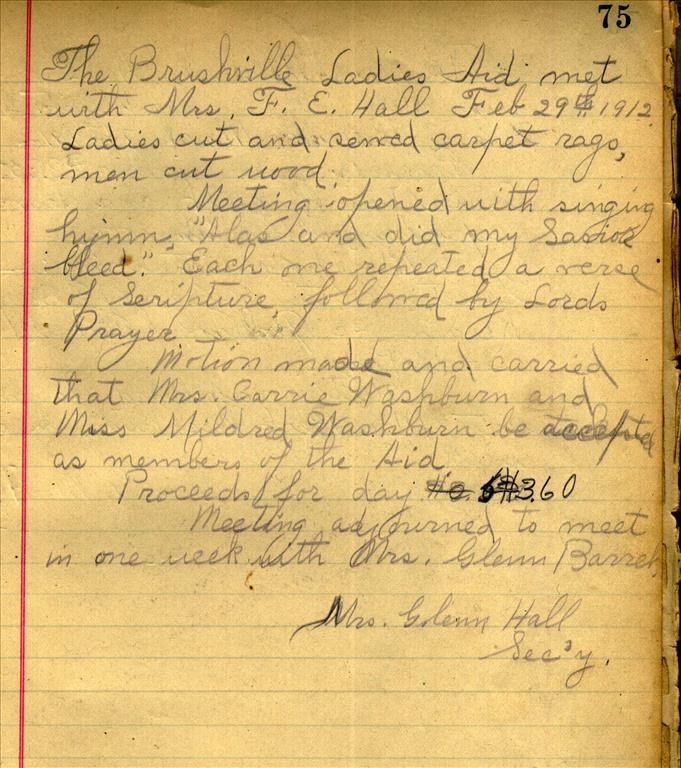 75
The Brushville Ladies Aid met
with Mrs. F. E. Hall Feb 29th 1912.
Ladies cut and sewed carpet rags,
men cut wood.
Meeting opened with singing
hymn, "Alas and did my Savior
bleed." Each one repeated a verse
of Scripture, followed by Lords
Prayer.
Motion made and carried
that Mrs. Carrie Washburn and
Miss Mildred Washburn be accepted
as members of the Aid.
Proceeds for day $3.60
Meeting adjourned to meet
in one week with Mrs. Glenn Barret.
Mrs. Glenn Hall
Sec'y.